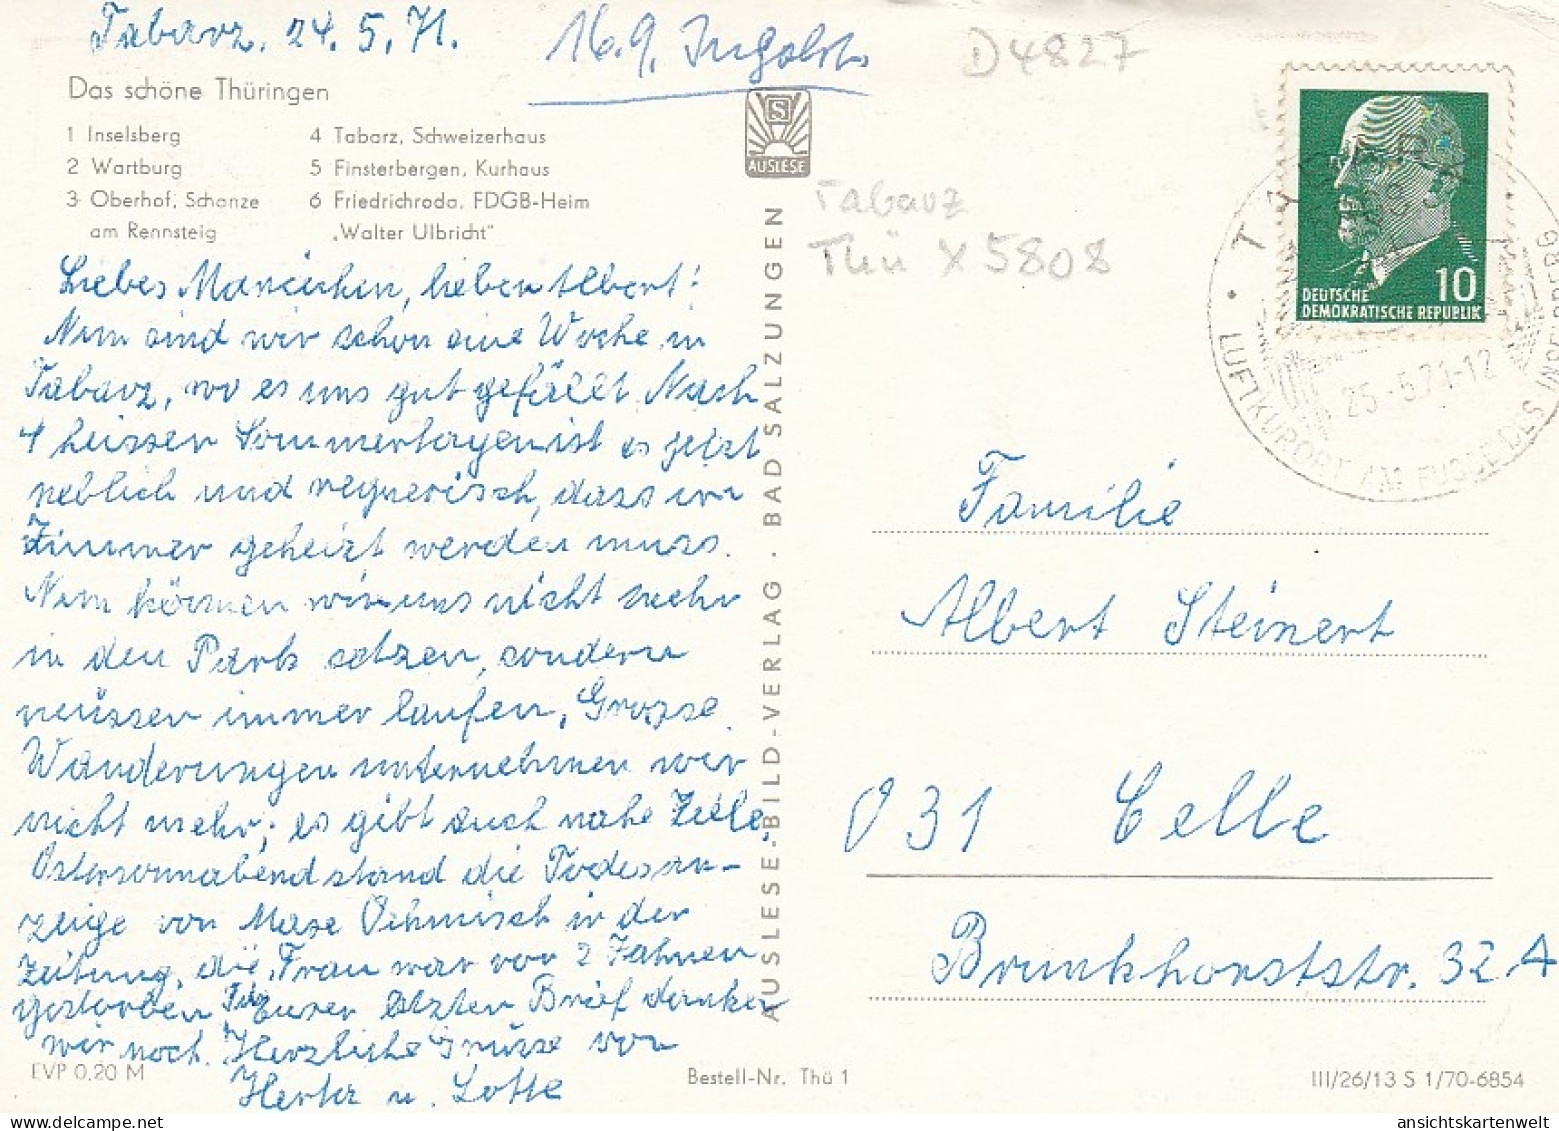 Tabarz, 24.5.71.
16.9. Ingolst.
D4827
Das schöne Thüringen
1 Inselsberg
2 Wartburg
3 Oberhof, Schanze
am Rennsteig
4 Tabarz, Schweizerhaus
5 Finsterbergen, Kurhaus
6 Friedrichroda, FDGB-Heim
„Walter Ulbricht"
S
AUSLESE
Tabarz
Thü X 5808
Liebes Mariechen, lieber Albert!
Nun sind wir schon eine Woche in
Tabarz, wo es uns gut gefällt. Nach
4 heissen Sommertagen ist es jetzt
neblich und regnerisch, dass im
Zimmer geheizt werden muss.
Nun können wir uns nicht mehr
in den Park setzen, sondern
müssen immer laufen. Grosse
Wanderungen unternehmen wir
nicht mehr; es gibt auch nahe Ziele.
Ostersonnabend stand die Todesan-
zeige von Max Oehmisch in der
Zeitung, die Frau war vor 2 Jahren
gestorben. Für Euren letzten Brief danken
wir noch. Herzliche Grüsse von
Herta u. Lotte
AUSLESE-BILD-VERLAG · BAD SALZUNGEN
10
DEUTSCHE
DEMOKRATISCHE REPUBLIK
TABARZ
LUFTKURORT AM FUSSE DES INSELSBERG
25.-5.71-12
Familie
Albert Steinert
031 Celle
Brunkhorststr. 32 A
EVP 0,20 M
Bestell-Nr. Thü 1
III/26/13 S 1/70-6854
ansichtskartenwelt